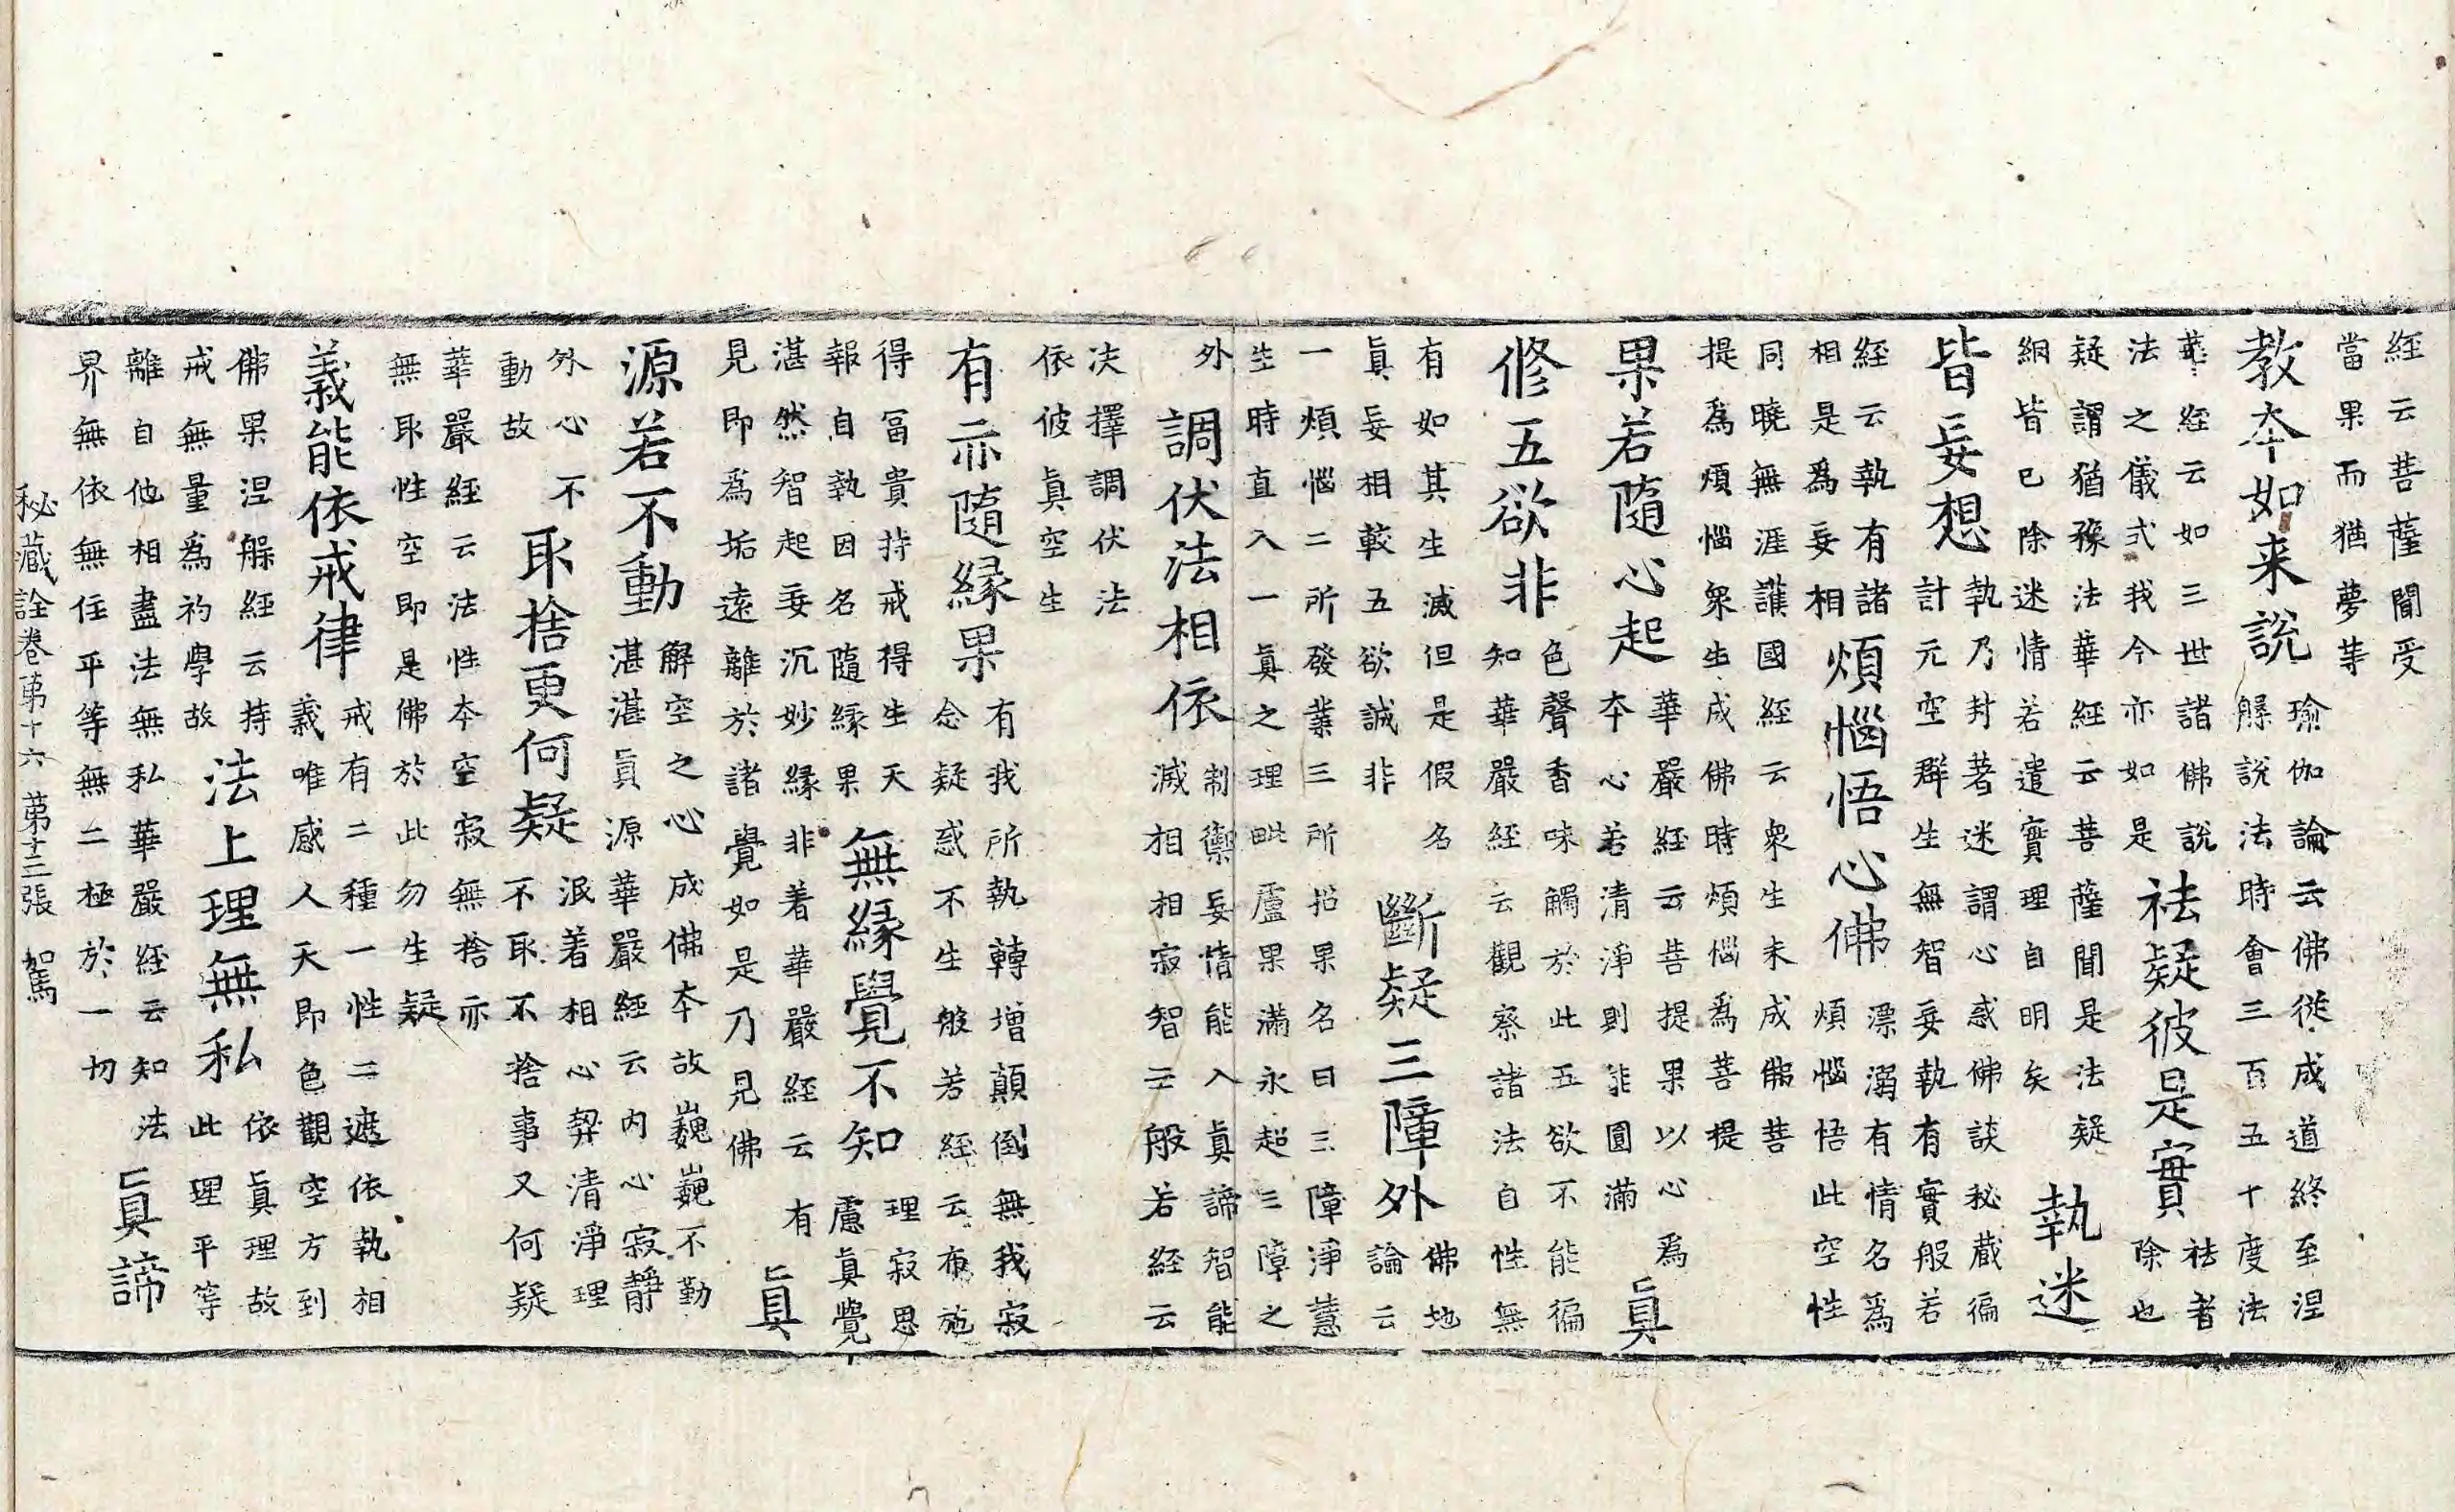 經云菩薩聞受
當果而猶夢等
教夲如来說
瑜伽論云佛從成道終至涅
槃說法時會三百五十度法
華經云如三世諸佛說
法之儀式我今亦如是
祛疑彼是實
祛者
除也
疑謂猶豫法華經云菩薩聞是法疑
網皆已除迷情若遣實理自明矣
執迷
皆妄想
執乃封著迷謂心惑佛談秘蔵徧
計元空群生無智妄執有實般若
經云執有諸
相是爲妄相
煩惱悟心佛
漂溺有情名爲
煩惱悟此空性
同曉無涯護國經云衆生未成佛菩
提爲煩惱衆生成佛時煩惱爲菩提
果若隨心起
華嚴經云菩提果以心爲
夲心若清淨則能圓滿
真
修五欲非
色聲香味觸於此五欲不能徧
知華嚴經云觀察諸法自性無
有如其生滅但是假名
真妄相較五欲誠非
斷疑三障外
佛地
論云
一煩惱二所發業三所招果名曰三障淨慧
生時直入一真之理毗盧果滿永超三障之
外
調伏法相依
制禦妄情能入真諦智能
滅相相寂智云般若經云
决擇調伏法
依彼真空生
有亦隨緣果
有我所執轉增顛倒無我寂
念疑惑不生般若經云布施
得冨貴持戒得生天
報自執因名隨緣果
無緣覺不知
理寂思
慮真覺
湛然智起妄沉妙緣非着華嚴經云有
見即爲垢遠離於諸覺如是乃見佛
真
源若不動
解空之心成佛夲故巍巍不勤
湛湛真源華嚴經云内心寂靜
外心不
動故
取捨更何疑
泯着相心契清淨理
不取不捨事又何疑
華嚴經云法性夲空寂無捨亦
無取性空即是佛於此勿生疑
義能依戒律
戒有二種一性二遮依執相
義唯感人天即色觀空方到
佛果涅槃經云持
戒無量爲礿學故
法上理無私
依真理故
此理平等
離自他相盡法無私華嚴經云知法
界無依無住平等無二極於一切
真諦
秘藏詮卷第十六 第十三張 駕